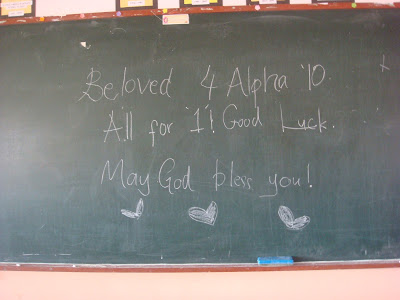 Beloved 4 Alpha '10
All for '1'! Good Luck.
May God bless you!